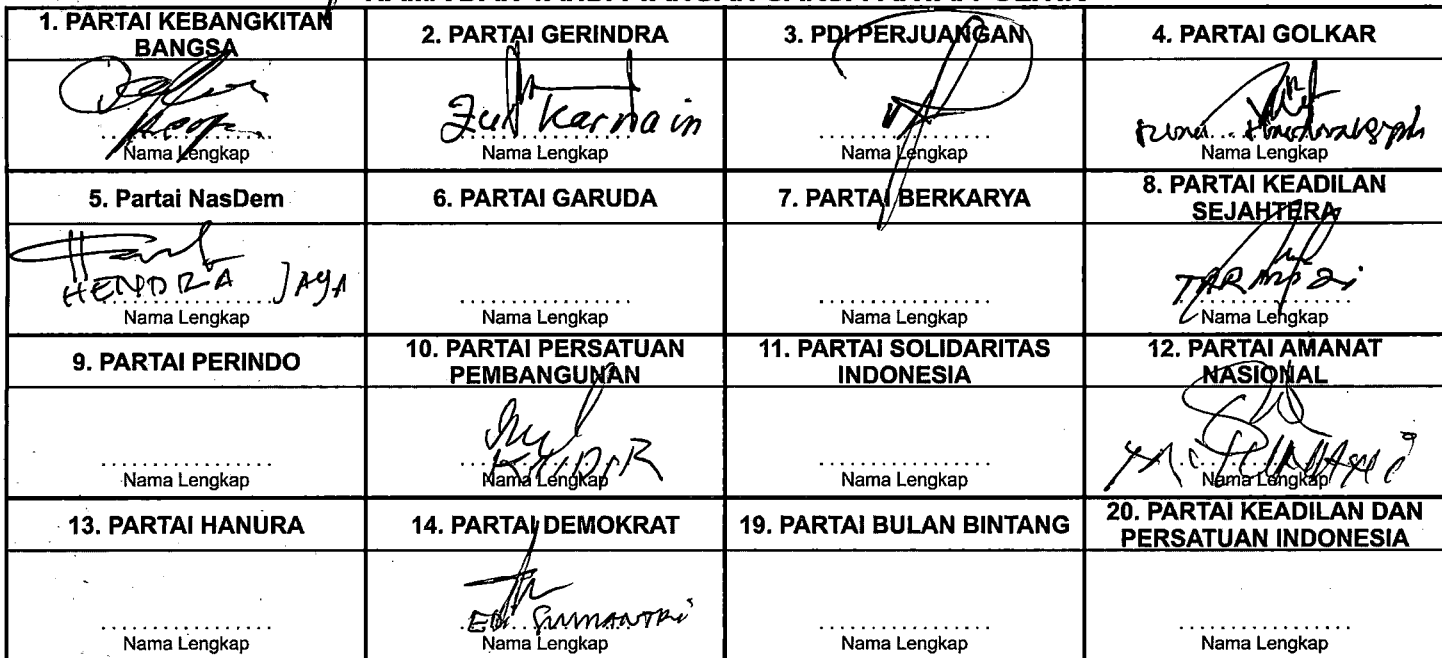 1. PARTAI KEBANGKITAN BANGSA
2. PARTAI GERINDRA
3. PDI PERJUANGAN
4. PARTAI GOLKAR
Nama Lengkap
Zulkarnain
Nama Lengkap
Nama Lengkap
Nama Lengkap
5. Partai NasDem
6. PARTAI GARUDA
7. PARTAI BERKARYA
8. PARTAI KEADILAN SEJAHTERA
HENDRA JAYA
Nama Lengkap
Nama Lengkap
Nama Lengkap
Nama Lengkap
9. PARTAI PERINDO
10. PARTAI PERSATUAN PEMBANGUNAN
11. PARTAI SOLIDARITAS INDONESIA
12. PARTAI AMANAT NASIONAL
Nama Lengkap
Nama Lengkap
Nama Lengkap
Nama Lengkap
13. PARTAI HANURA
14. PARTAI DEMOKRAT
19. PARTAI BULAN BINTANG
20. PARTAI KEADILAN DAN PERSATUAN INDONESIA
Nama Lengkap
EDI SUMANTRI
Nama Lengkap
Nama Lengkap
Nama Lengkap